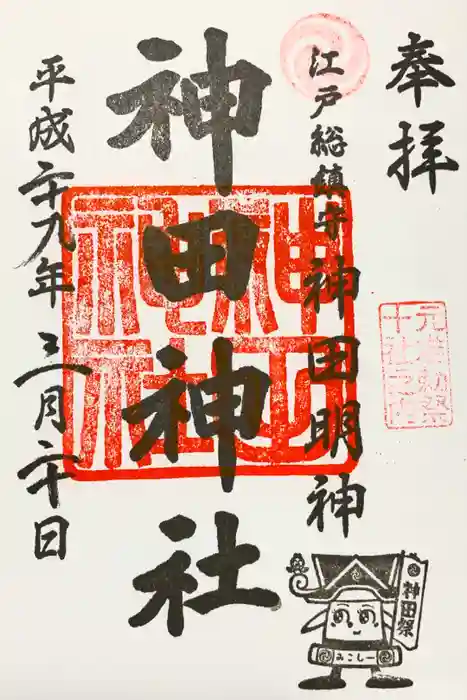 奉拝
江戸総鎮守 神田明神
神田神社
平成二十九年 三月二十日
神田神社
元准勅祭
十社之内
神田祭
みこしー